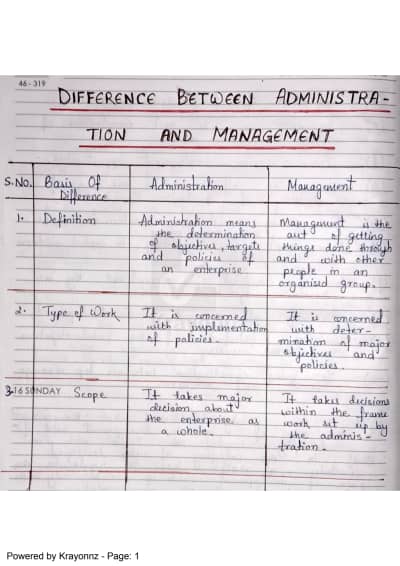 46-319
DIFFERENCE BETWEEN ADMINISTRA-
TION AND MANAGEMENT
S.NO. Basis Of Difference Administration Management
1. Definition
Administration means
the determination
of objectives, targets
and policies of
an enterprise
Management is the
art of getting
things done through
and with other
people in an
organised group.
2. Type of Work
It is concerned
with implementation
of policies.
It is concerned
with deter-
mination of major
objectives and
policies.
3. 16 SUNDAY Scope
It takes major
decision about
the enterprise as
a whole.
It takes decisions
within the frame
work set up by
the adminis-
tration.
Powered by Krayonnz - Page: 1